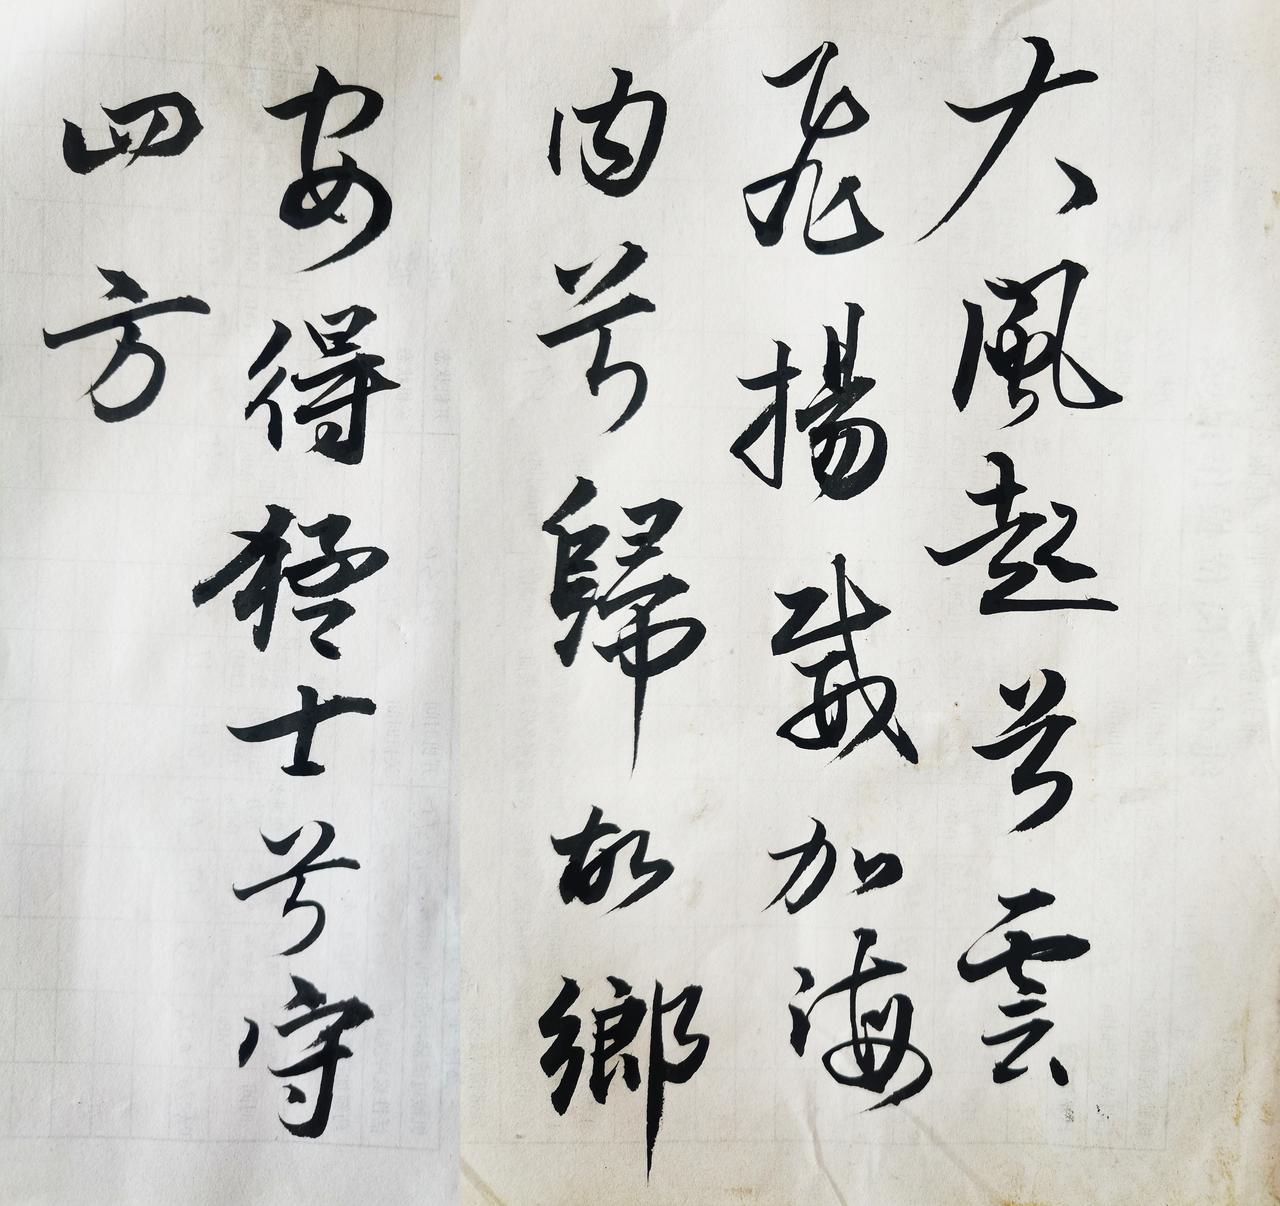 大風起兮雲
飛揚威加海
内兮歸故鄉
安得猛士兮守
四方